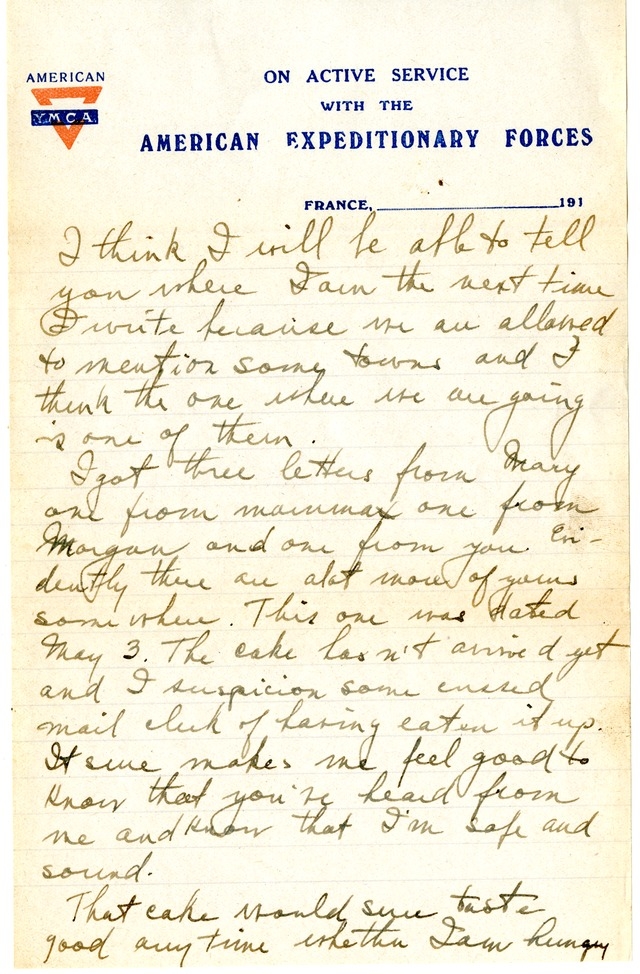 AMERICAN
YMCA
ON ACTIVE SERVICE
WITH THE
AMERICAN EXPEDITIONARY FORCES
FRANCE, 191
I think I will be able to tell
you where I am the next time
I write because we are allowed
to mention some towns and I
think the one where we are going
is one of them.
I got three letters from Mary
one from mamma one from
Morgan and one from you. Evi-
dently there are alot more of yours
somewhere. This one was dated
May 3. The cake hasn't arrived yet
and I suspicion some cussed
mail clerk of having eaten it up.
It sure makes me feel good to
know that you've heard from
me and know that I'm safe and
sound.
That cake would sure taste
good any time whether I am hungry